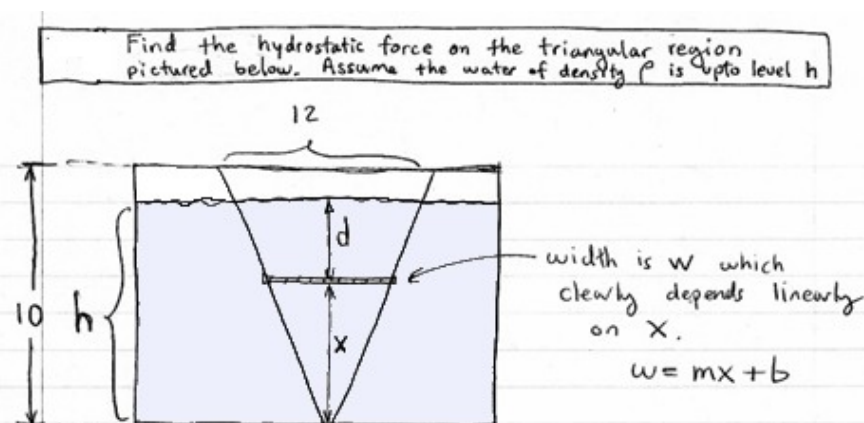 Find the hydrostatic force on the triangular region
pictured below. Assume the water of density ρ is upto level h
12
d
width is w which
clearly depends linearly
on x.
10
h
x
w = mx + b